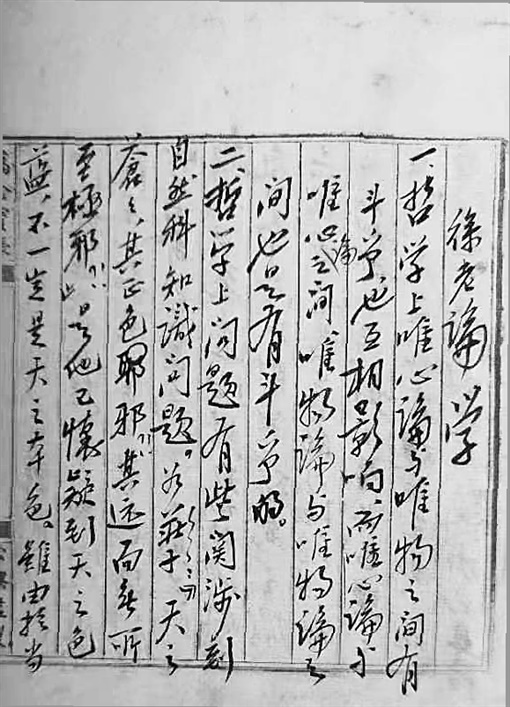 徐老論学
一、哲学上唯心論与唯物之间有
斗争,也互相影响,而唯心論与
唯心論之间,唯物論与唯物論之
间也是有斗争的。
二、哲学上问题有些関涉到
自然科知識问题。如莊子云天之
蒼々,其正色耶邪,其远而無所
至極邪,此是他已懷疑到天之色
蓝,不一定是天之本色。雖由於当